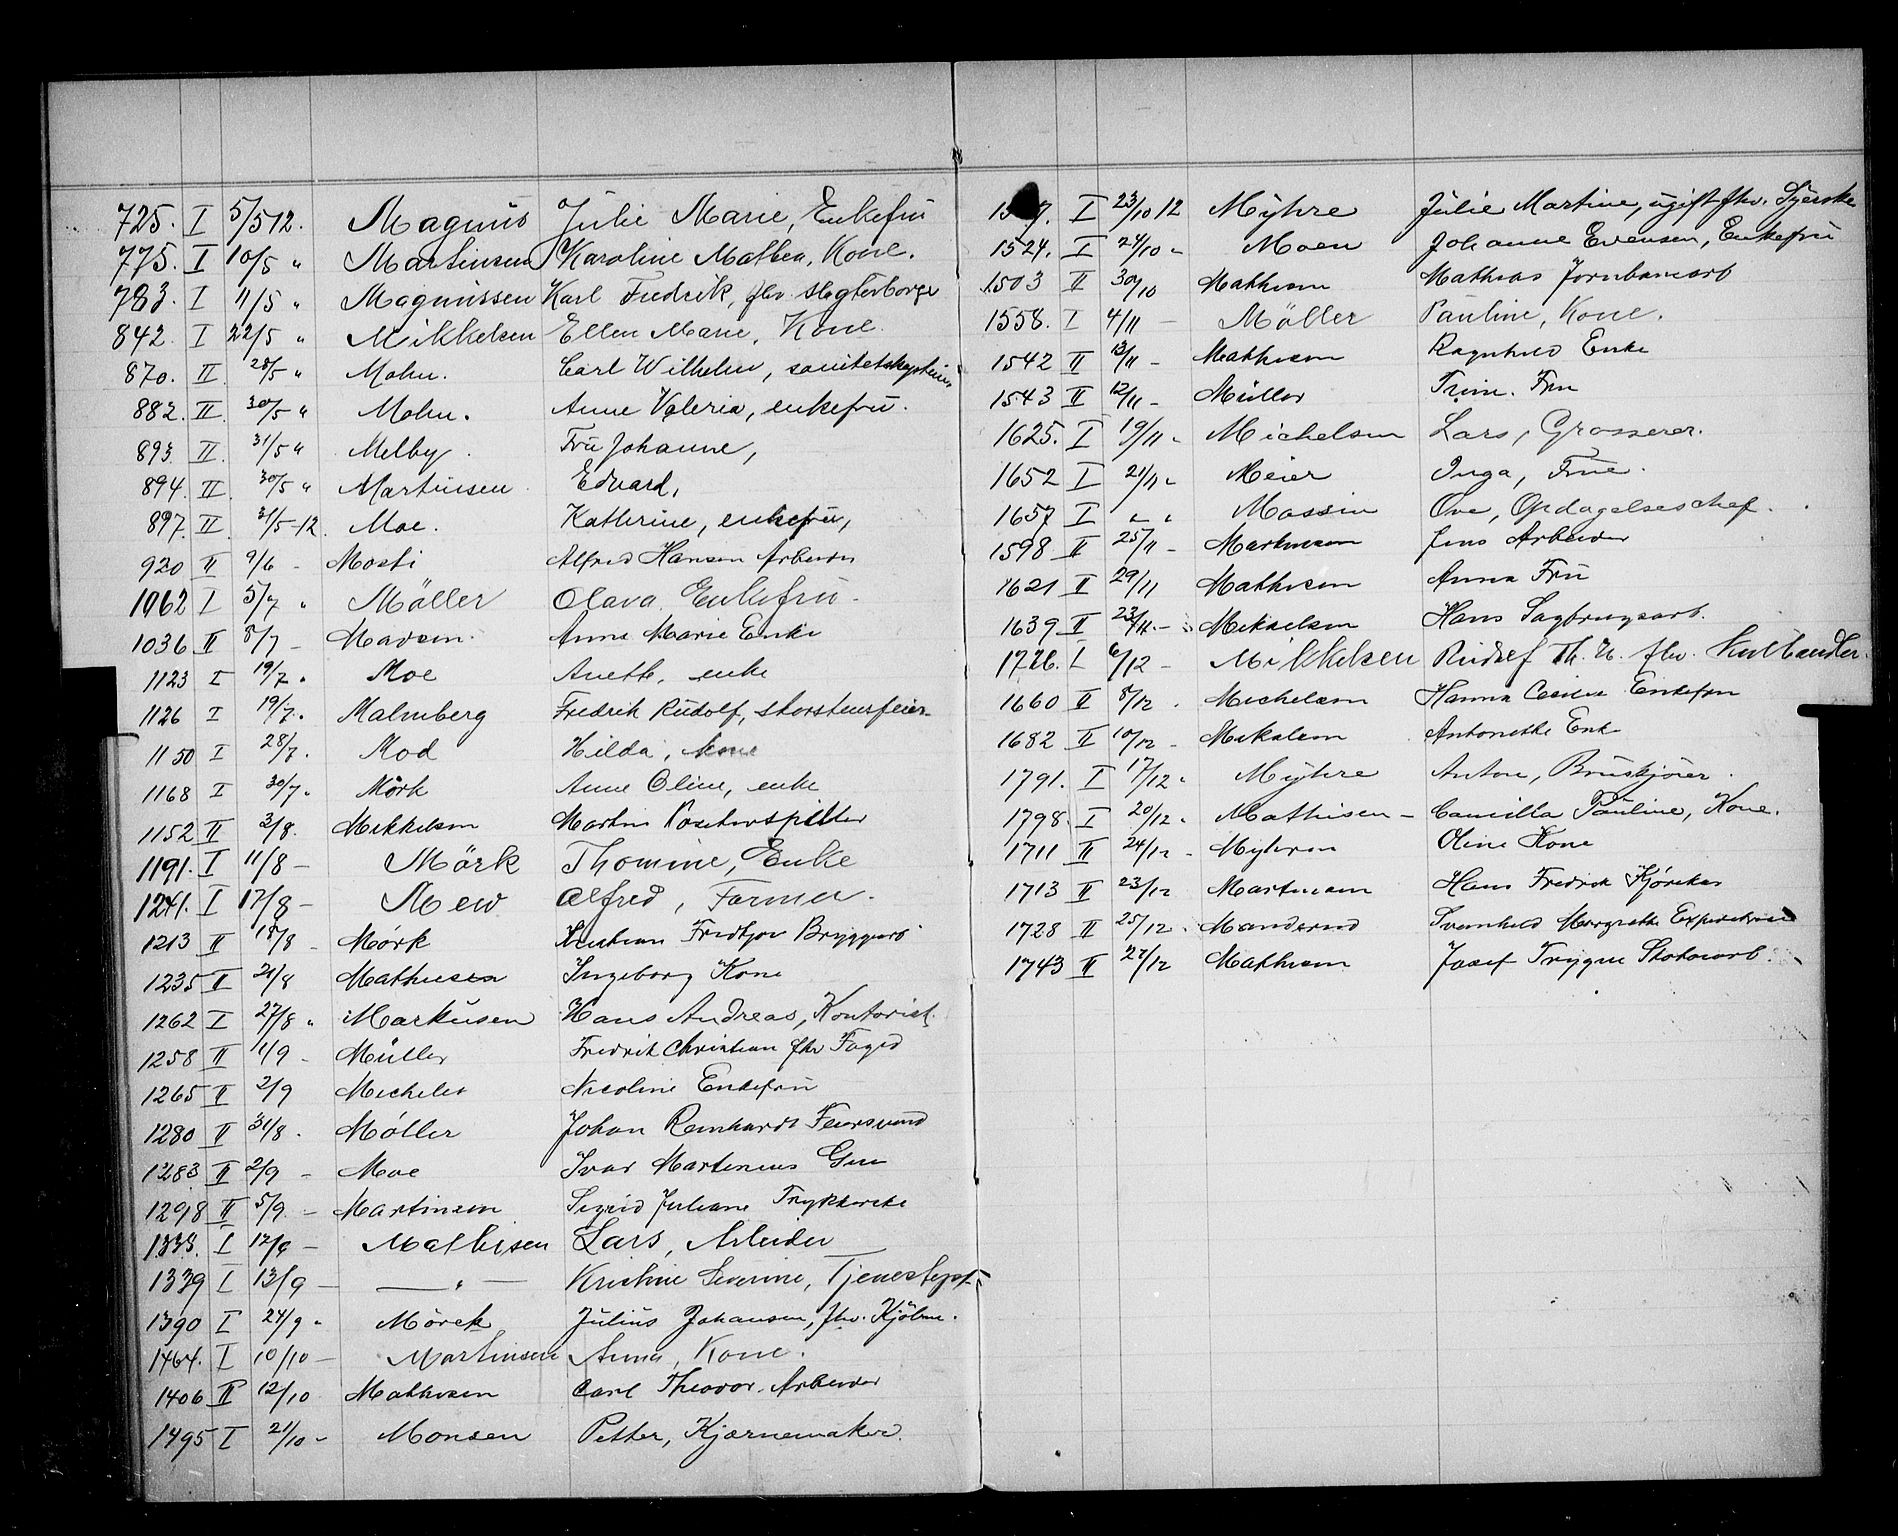 725. I 5/5 12. Magnus Julie Marie, Enkefru
775. I 10/5 " Martinsen Karoline Mathea, Kone.
783. I 11/5 " Magnussen Karl Fredrik, fhv.
842. I 22/5 " Mikkelsen Ellen Marie, Kone.
870. II. 28/5 " Mohn. Carl Wilhelm,
882. II. 30/5 " Mohn. Anne Valeria, enkefru.
893. II. 31/5 " Melby. Fru Johanne,
894. II. 30/5 " Martinsen Edvard,
897. II. 31/5-12. Moe. Kathrine, enkefru,
920 II 9/6 - Mosti Alfred Hansen Arbeider
1062 I 5/7 " Möller Olava Enkefru -
1036 II 5/7 - Madsen. Anne Marie Enke
1123 I 19/7 " Moe Anette, enke
1126 I 19/7. Malmberg Fredrik Rudolf, skorstensfeier
1150 I 28/7. Mod Hilda, kone
1168 I 30/7 " Mörk Anne Oline, enke
1152 II 3/8. Mikkelsen Martin
1191. I 11/8 - Mörk Thomine, Enke
1241. I 17/8 - Mew Alfred, Farmer.
1213 II 18/8 - Mørk Kristian Fredtjov Bryggearb
1235 II 21/8 Mathiesen Ingeborg Kone
1262 I 27/8 " Markusen Hans Andreas, Kontorist.
1258 II 1/9 - Müller Fredrik Christian fhv Foged
1265 II 2/9 Michelet Nicoline Enkefru
1280 II 31/8. Möller Johan Reinhardt
1283 II 2/9 - Moe Ivar Martinius
1298 II 5/9. - Martinsen Sigrid Juliane Trykkerske
1333. I 12/9 - Mathisen Lars, Arbeider
1339 I 13/9 - — " — Kristine Severine, Tjenestepi.
1390 I 24/9 " Mörck Julius Johansen, fhv.
1464. I 10/10 - Martinsen Anna, Kone.
1406 II 12/10 Mathisen Carl Theodor. Arbeider
1495 I 21/10 - Monsen Petter, Kjærnemaker.
I 23/10 12 Myhre Julie Martine, ugift fhv. Syerske
1524. I 24/10 " Moen Johanne Evensen, Enkefru
1503 II 30/10 Mathisen Mathias Jernbanearb
1558. I 4/11 - Möller Pauline, Kone.
1542 II 13/11 - Mathisen Ragnhild Enke
1543 II 12/11 - Müller Trine. Fru
1625. I 19/11 " Michelsen Lars, Grosserer.
1652 I 21/11 " Meier Inga, Frue.
1657 I " " Massin Ove, Opdagelseschef.
1598 II 25/11 - Martinsen Jens Arbeider
1621 II 29/11 Mathisen Anna Fru
1639 II 23/11 - Mikaelsen Hans Sagbrugsarb.
1726. I 6/12 - Mikkelsen Rudolf Th. fhv. Kulhandler.
1660 II 8/12. Michelsen Hanna Cecilie Enkefru
1682 II 10/12 - Mikalsen Antonette Enke
1791. I 17/12 " Myhre Anton, Bruskjører.
1798. I 20/12 " Mathisen - Camilla Pauline, Kone.
1711 II 24/12 - Myhren Oline Kone
1713 II 23/12 Martinsen Hans Fredrik
1728 II 25/12. Svanhild Margrethe
1743 II 27/12 Mathisen Josef Trygve